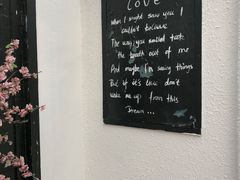 LOVE
When I saw you I
couldn't believe
The way you smiled took
the breath out of me
And maybe I'm seeing things
But if it's love don't
wake me up from this
Dream...